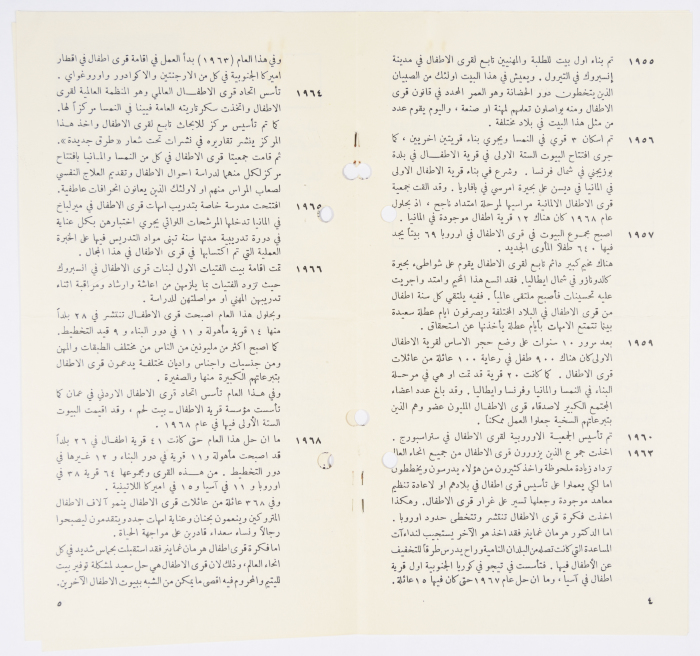 ١٩٥٥ تم بناء اول بيت للطلبة والمهنيين تابع لقرى الاطفال في مدينة
إنسبروك في التيرول . ويعيش في هذا البيت اولئك من الصبيان
الذين يتخطون دور الحضانة وهو العمر المحدد في قانون قرى
الاطفال ومنه يواصلون تعلمهم لمهنة او صنعة ، واليوم يقوم عدد
من مثل هذا البيت في بلاد مختلفة .
١٩٥٦ تم اسكان ٣ قرى في النمسا ويجري بناء قريتين اخريين ، كما
جرى افتتاح البيوت الستة الاولى في قرية الاطفال في بلدة
بوزيجي في شمال فرنسا . وشرع في بناء قرية الاطفال الاولى
في المانيا في ديسن على بحيرة امرسي في بافاريا . وقد الفت جمعية
قرى الاطفال الالمانية مراسيها لمرحلة امتداد ناجح ، اذ بحلول
عام ١٩٦٨ كان هناك ١٢ قرية اطفال موجودة في المانيا .
١٩٥٧ اصبح مجموع البيوت في قرى الاطفال في اوروبا ٦٩ بيتاً يجد
فيها ٦٤٠ طفلاً المأوى الجديد .
هناك مخيم كبير دائم تابع لقرى الاطفال يقوم على شواطىء بحيرة
كالدونازو في شمال ايطاليا. فقد اتسع هذا المخيم وامتد واجريت
عليه تحسينات فأصبح ملتقى عالمياً . ففيه يلتقي كل سنة اطفال
من قرى الاطفال في البلاد المختلفة ويصرفون ايام عطلة سعيدة
بينا تتمتع الامهات بأيام عطلة يأخذنها عن استحقاق .
١٩٥٩ بعد مرور ١٠ سنوات على وضع حجر الاساس لقرية الاطفال
الاولى كان هناك ٩٠٠ طفل في رعاية ١٠٠ عائلة من عائلات
قرى الاطفال . كما كانت ٢٠ قرية قد تمت او هي في مرحلة
البناء في النمسا والمانيا وفرنسا وايطاليا . وقد بالغ عدد اعضاء
المجتمع الكبير لاصدقاء قرى الاطفال المليون عضو وهم الذين
بتبرعاتهم السخية جعلوا العمل ممكناً .
١٩٦٠ تم تأسيس الجمعية الاوروبية لقرى الاطفال في ستراسبورج .
١٩٦٣ اخذت جموع الذين يزورون قرى الاطفال من جميع انحاء العالم
تزداد زيادة ملحوظة واخذ كثيرون من هؤلاء يدرسون ويخططون
اما لكي يعملوا على تأسيس قرى اطفال في بلادهم او لاعادة تنظيم
معاهد موجودة وجعلها تسير على غرار قرى الاطفال. وهكذا
اخذت فكرة قرى الاطفال تنتشر وتتخطى حدود اوروبا .
اما الدكتور هرمان غماينر فقد اخذ هو الآخر يستجيب لنداءآت
المساعدة التي كانت تصله من البلدان النامية وراح يدرس طرقاً للتخفيف
عن الأطفال فيها . فتأسست في تيجو في كوريا الجنوبية اول قرية
اطفال في آسيا ، وما ان حل عام ١٩٦٧ حتى كان فيها ١٥ عائلة .
٤
وفي هذا العام (١٩٦٣) بدأ العمل في اقامة قرى اطفال في اقطار
اميركا الجنوبية في كل من الارجنتين والاكوادور واوروغواي .
١٩٦٤ تأسس اتحاد قرى الاطفال العالمي وهو المنظمة العالمية لقرى
الاطفال واتخذت سكرتاريته العامة فيينا في النمسا مركزاً لها.
كما تم تأسيس مركز للابحاث تابع لقرى الاطفال واخذ هذا
المركز ينشر تقاريره في نشرات تحت شعار «طرق جديدة».
ثم قامت جمعيتا قرى الاطفال في كل من النمسا والمانيا بافتتاح
مركز لكل منهما لدراسة احوال الاطفال وتقديم العلاج النفسي
لصعاب المراس منهم او لاولئك الذين يعانون انحرافات عاطفية.
١٩٦٥ افتتحت مدرسة خاصة بتدريب امهات قرى الاطفال في ميرلباخ
في المانيا تدخلها المرشحات اللواتي يجري اختبارهن بكل عناية
في دورة تدريبية مدتها سنة تبنى مواد التدريس فيها على الخبرة
العملية التي تم اكتسابها في قرى الاطفال في هذا المجال .
١٩٦٦ تمت اقامة بيت الفتيات الاول لبنات قرى الاطفال في انسبروك
حيث تزود الفتيات بما يلزمهن من اعاشة وارشاد ومراقبة اثناء
تدريبهن المهني او مواصلتهن للدراسة .
وبحلول هذا العام اصبحت قرى الاطفال تنتشر في ٢٨ بلداً
منها ١٤ قرية مأهولة و ١١ في دور البناء و ٩ قيد التخطيط.
كما اصبح اكثر من مليونين من الناس من مختلف الطبقات والمهن
ومن جنسيات واجناس واديان مختلفة يدعمون قرى الاطفال
بتبرعاتهم الكبيرة منها والصغيرة .
وفي هذا العام تأسس اتحاد قرى الاطفال الاردني في عمان كما
تأسست مؤسسة قرية الاطفال - بيت لحم ، وقد اقيمت البيوت
الستة الأولى فيها في عام ١٩٦٨ .
١٩٦٨ ما ان حل هذا العام حتى كانت ٤١ قرية اطفال في ٢٦ بلداً
قد اصبحت مأهولة و ١١ قرية في دور البناء و ١٢ غيرها في
دور التخطيط . من هذه القرى وبجموعها ٦٤ قرية ٣٨ في
اوروبا و ١١ في آسيا و ١٥ في اميركا اللاتينية .
وفي ٣٦٨ عائلة من عائلات قرى الاطفال ينمو آلاف الاطفال
المتروكين وينعمون بحنان وعناية امهات جدد ويتقدمون ليصبحوا
رجالاً ونساء سعداء قادرين على مواجهة الحياة .
اما فكرة قرى اطفال هرمان غماينر فقد استقبلت بحماس شديد في كل
انحاء العالم ، وذلك لان قرى الاطفال هي حل سعيد لمشكلة توفير بيت
لليتيم والمحروم فيه اقصى ما يمكن من الشبه ببيوت الاطفال الآخرين.
٥